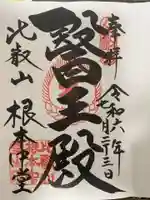 奉拝
令和六年
七月二十三日
醫王殿
比叡山
根本中堂